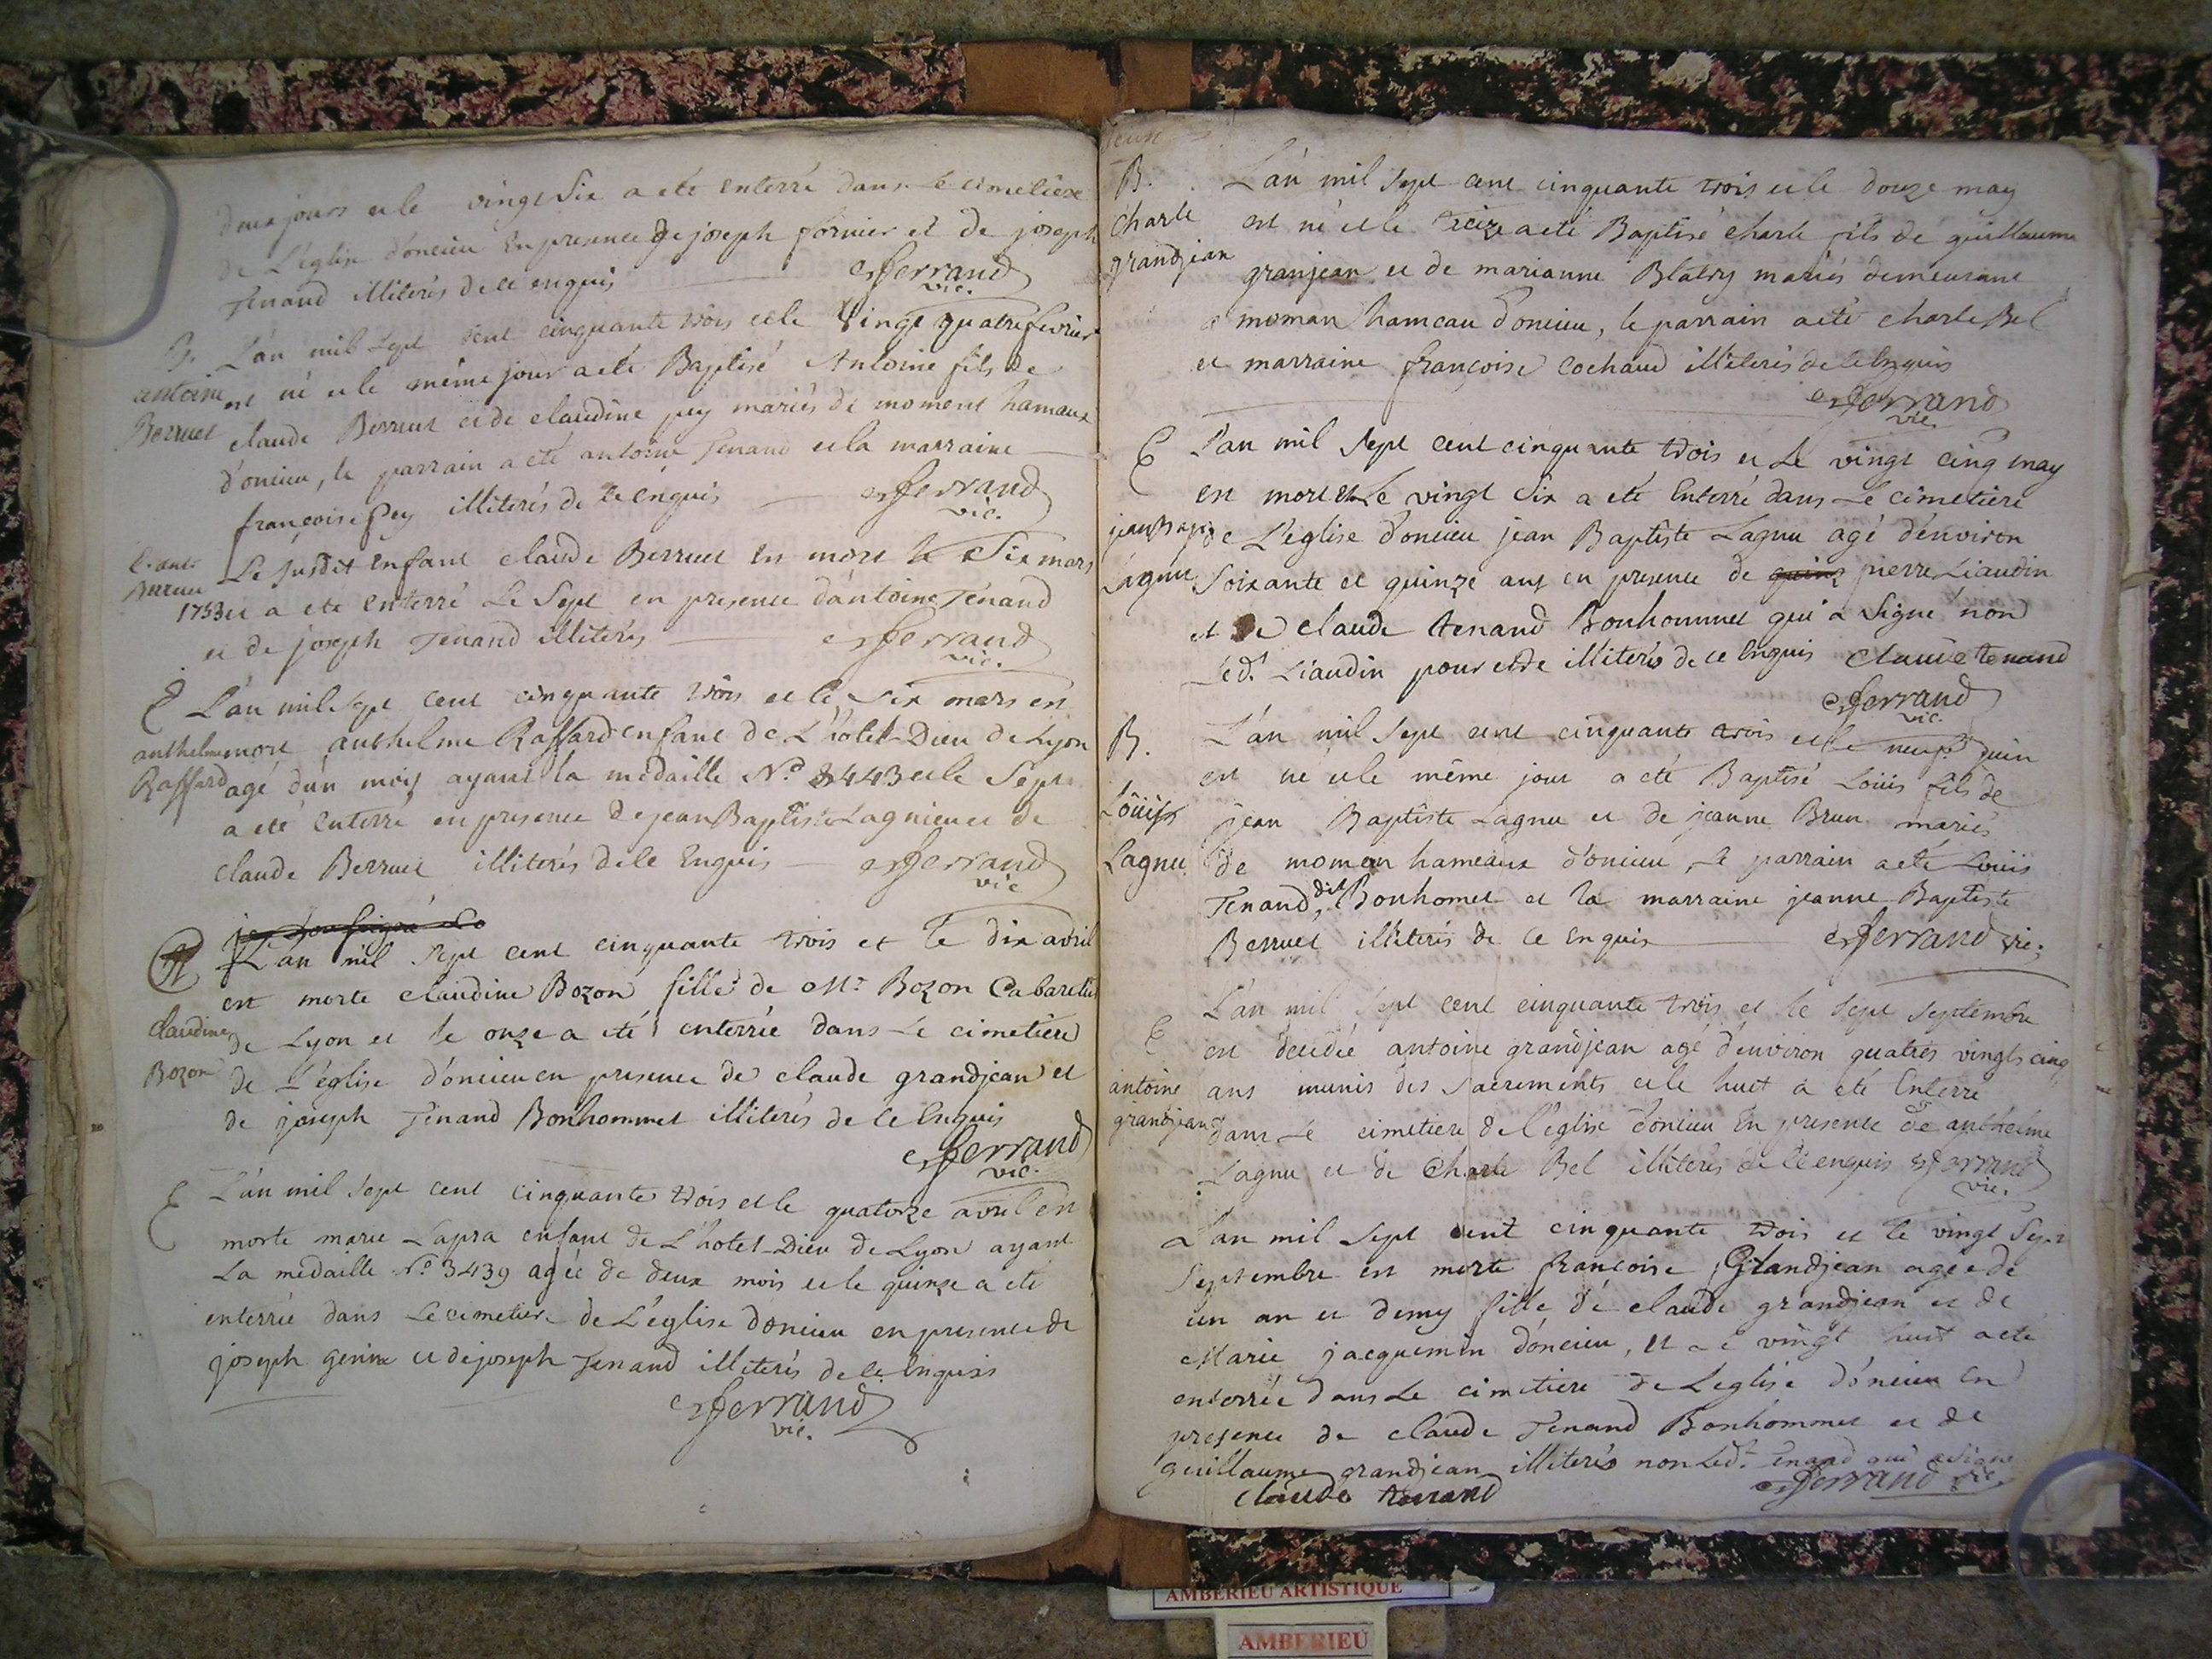 deux jours et le vingt six a eté enterré dans le cimetiere
de L'église d'oncieu En presence de joseph fornier et de joseph
Tenand illiterés de ce enquis
eferrand
vic.
B. L'an mil sept cent cinquante trois et le Vingt quatre fevrier
antoine est né et le même jour a eté Baptisé Antoine fils de
Berruet claude Berruet et de claudine pey mariés de moment hamaux
d'oncieu, le parrain a eté antoine Tenand et la marraine
françoise Pey illiterés de ce enquis eferrand
vic.
Le susdit enfant claude Berruet est mort le Six mars
1753 et a eté enterré Le Sept en presence d'antoine Tenand
et de joseph Tenand illiterés eferrand
vic.
E L'an mil sept cent cinquante trois et le Six mars est
anthelme mort anthelme Raffard enfant de L'hotel-Dieu de Lyon
Raffard agé d'un mois ayant la medaille N.º 3443 et le Sept
a eté enterré en presence de jean Baptiste Lagnieu et de
claude Berruet illiterés de ce Enquis eferrand
vic
je soussigné
L'an mil sept cent cinquante trois et le dix avril
est morte claudine Bozon fille de Mr Bozon Cabaretier
claudine de Lyon et le onze a eté enterrée dans Le cimetiere
Bozon de L'église d'oncieu en presence de claude grandjean et
de joseph Tenand Bonhommet illiterés de ce Enquis
eferrand
vic.
E L'an mil sept cent cinquante trois et le quatorze avril est
morte marie Lapra enfant de L'hotel-Dieu de Lyon ayant
La medaille N.º 3439 agée de deux mois et le quinze a eté
enterrée dans Le cimetiere de L'église doncieu en presence de
joseph genin et de joseph Tenand illiterés de ce Enquis
eferrand
vic.
B. L'an mil sept cent cinquante trois et le douze may
charle est né et le treize a eté Baptisé charle fils de guillaume
grandjean granjean et de marianne Blatry mariés demeurant
a moman hameau d'oncieu, le parrain a eté charle Bel
et marraine françoise cochaud illiterés de ce Enquis
eferrand
vic.
E L'an mil sept cent cinquante trois et Le vingt cinq may
est mort et Le vingt six a eté Enterré dans Le cimetiere
jean Bapt de L'église d'oncieu jean Baptiste Lagnu agé d'environ
Lagnu Soixante et quinze ans en presence de quinz pierre Liaudin
et de claude tenand Bonhommet qui a Signé non
Led.t Liaudin pour etre illiterés de ce Enquis claude tenand
eferrand
vic.
B. L'an mil sept cent cinquante trois et le neuf juin
est né et le même jour a eté Baptisé Louis fils de
Louis jean Baptiste Lagnu et de jeanne Brun mariés
Lagnu de moman hameaux d'oncieu, le parrain a eté Louis
Tenand, dit Bonhomet et la marraine jeanne Baptiste
Berruet illiterés de ce enquis eferrand vic.
L'an mil sept cent cinquante trois et le sept septembre
E est decedé antoine grandjean agé d'environ quatres vingts cinq
antoine ans munis des sacrements et le huit a eté Enterré
grandjean dans Le cimetiere de l'église d'oncieu En presence de anthelme
Lagnu et de Charle Bel illiterés de ce enquis eferrand
vic.
L'an mil sept cent cinquante trois et le vingt Sept
Septembre est morte françoise Grandjean agée de
un an et demy fille de claude grandjean et de
Marie jacquemin d'oncieu, et le vingt huit a eté
enterrée dans Le cimetiere de L'eglise d'oncieu En
presence de claude Tenand Bonhommet et de
guillaume grandjean illiterés non Led.t Tenand qui a signé
claude tenand eferrand vic.
AMBERIEU ARTISTIQUE
AMBERIEU